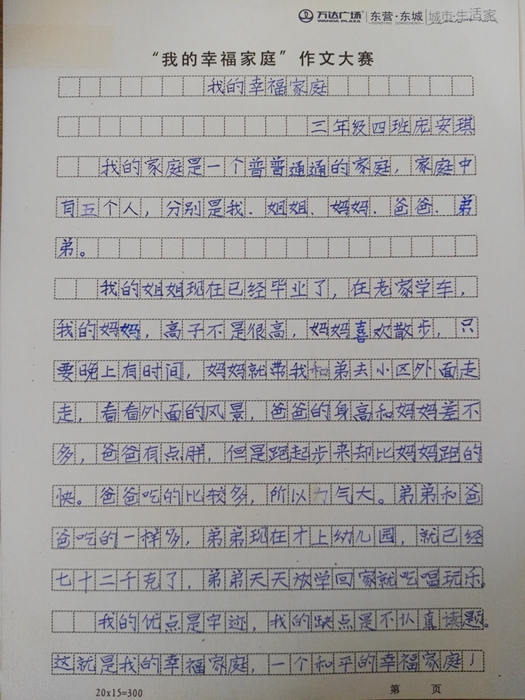 万达广场 东营·东城 城市·生活家
WANDA PLAZA
“我的幸福家庭”作文大赛
我的幸福家庭
三年级四班庞安琪
我的家庭是一个普普通通的家庭，家庭中
有五个人，分别是我、姐姐、妈妈、爸爸、弟
弟。
我的姐姐现在已经毕业了，在老家学车，
我的妈妈，高子不是很高，妈妈喜欢散步，只
要晚上有时间，妈妈就带我和弟去小区外面走
走，看看外面的风景，爸爸的身高和妈妈差不
多，爸爸有点胖，但是跑起步来却比妈妈跑的
快。爸爸吃的比较多，所以力气大。弟弟和爸
爸吃的一样多，弟弟现在才上幼儿园，就已经
七十二千克了，弟弟天天放学回家就吃喝玩乐。
我的优点是字迹，我的缺点是不认真读题。
这就是我的幸福家庭，一个和平的幸福家庭！
20x15=300 第 页